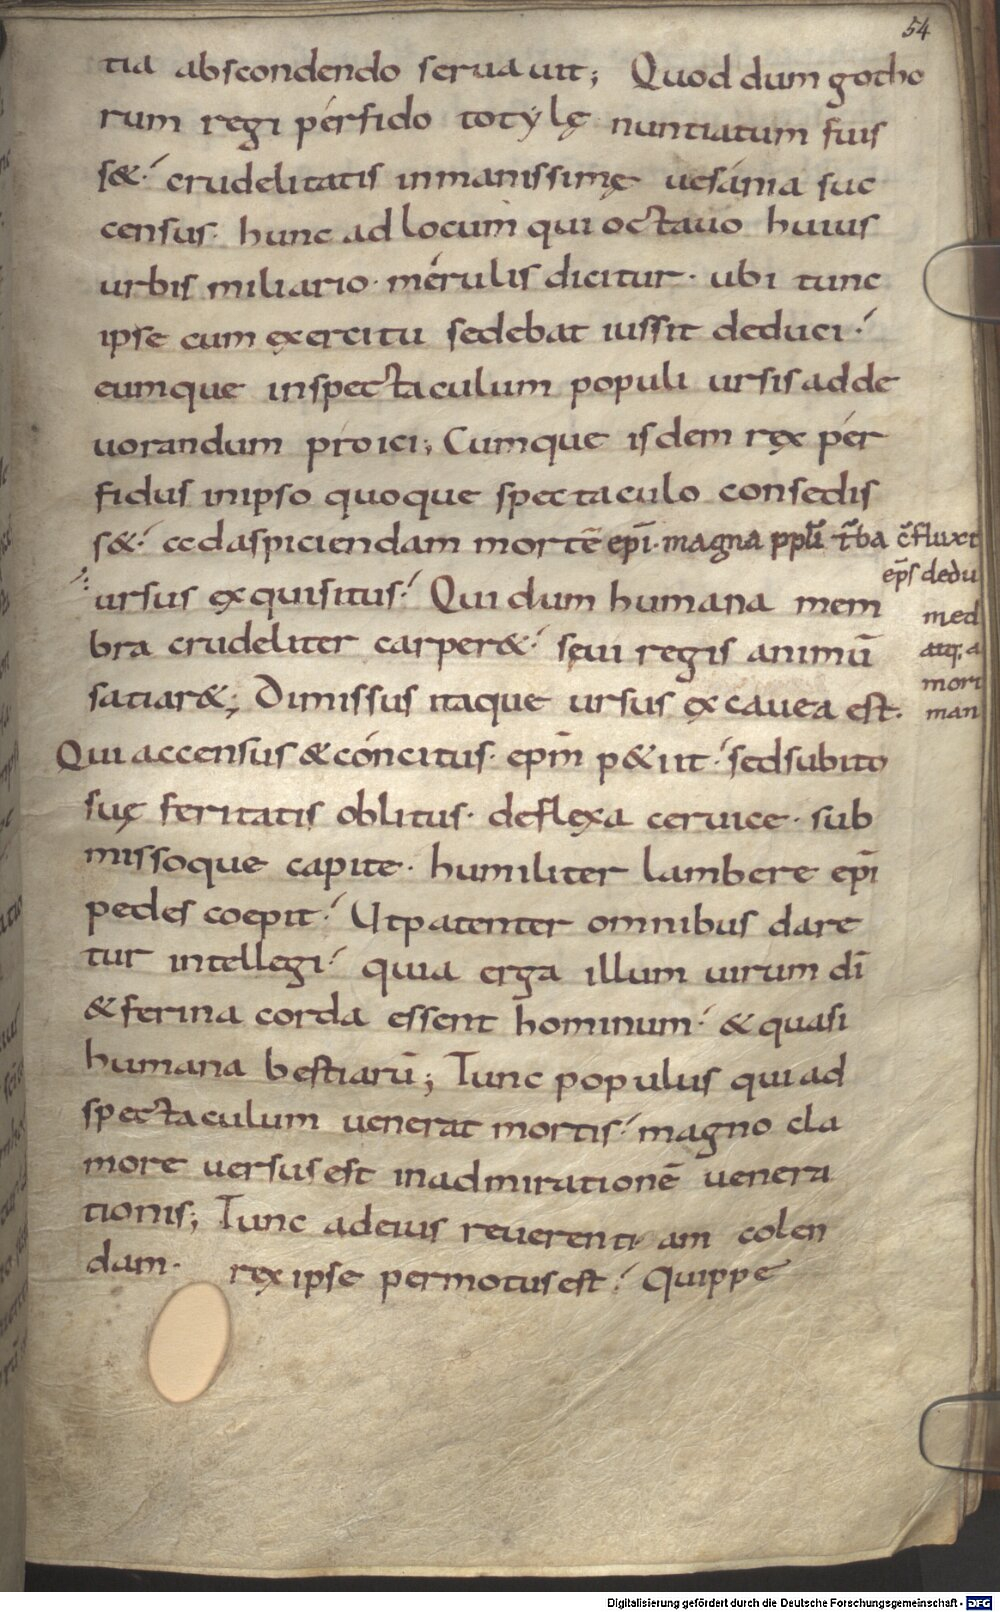 54
tia abscondendo seruauit; Quod dum gotho
rum regi pérfido totylę nuntiatum fuis
s&: crudelitatis inmanissimę uesánia suc
census· hunc ad locum qui octauo huius
urbis miliario· mérulis dicitur· ubi tunc
ipse cum exercitu sedebat iussit deduci:
eumque inspectaculum populi ursis adde
uorandum proici; Cumque isdem rex pér
fidus inipso quoque spectaculo consedis
s&: ad aspiciendam mortē epī· magna ppli t̄ba c̄fluxit
epś dedu
ursus exquisitus: Qui dum humana mem
med
bra crudeliter carper&: sęui regis animū
atq; a
satiar&; Dimissus itaque ursus excauea est·
mort
man
Qui accensus & cóncitus· epm̄ p&iit: sed subito
suę feritatis oblitus· deflexa ceruice· sub
missoque capite· humiliter lambere epī
pedes coepit: Ut patenter omnibus dare
tur intellegi: quia erga illum uirum dī
& ferina corda essent hominum: & quasi
humana bestiarū; Tunc populus qui ad
spectaculum uenerat mortis: magno cla
more uersus est inadmirationē uenera
tionis; Tunc adeius reuerentiam colen
dam· rex ipse permotus est: Quippe
Digitalisierung gefördert durch die Deutsche Forschungsgemeinschaft - DFG